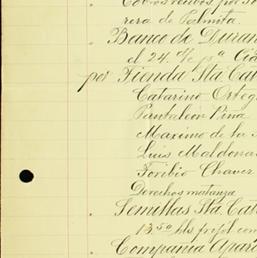 rera de Palmita.
Banco de Duran
el 24 d/c pa Cia
por Tienda Sta Cat
Catarino Orteg
Pantaleón Piña
Maximo de la
Luis Maldona
Toribio Chavez
Derechos matanza
Semillas Sta Cat
13.50 hls frijol con
Compañia Apar